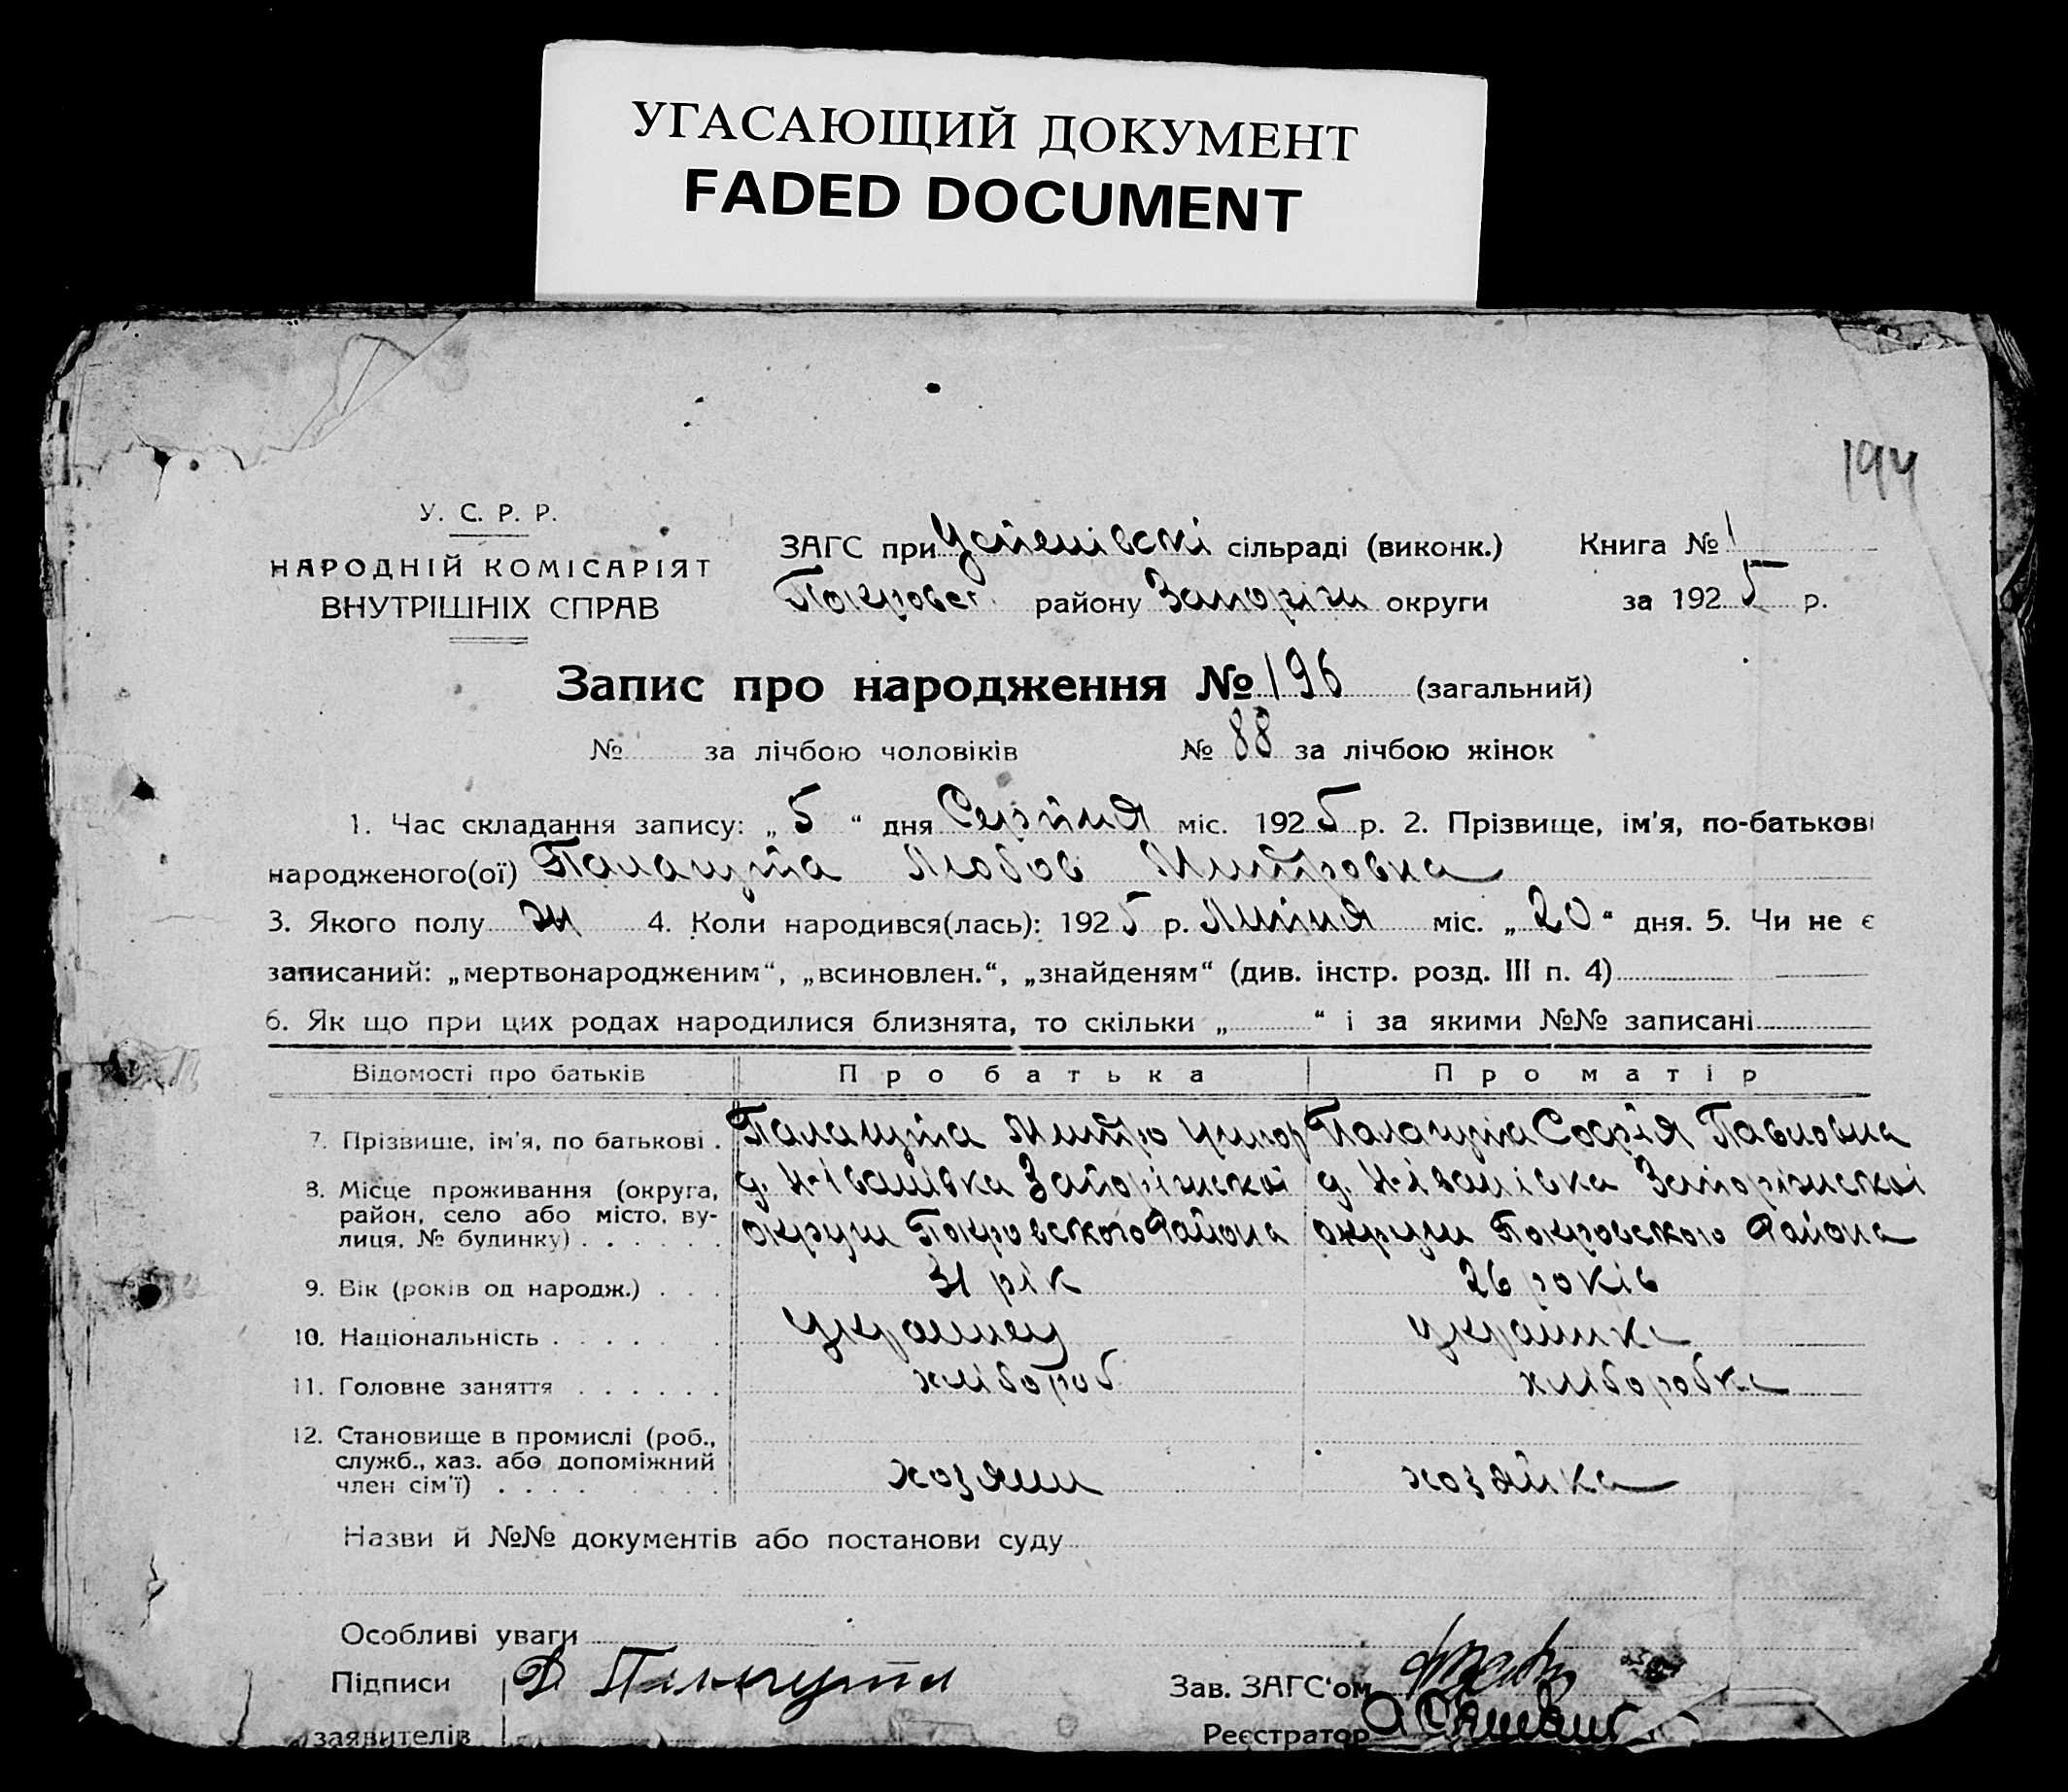 УГАСАЮЩИЙ ДОКУМЕНТ
FADED DOCUMENT
194
У. С. Р. Р.
НАРОДНІЙ КОМІСАРІЯТ
ВНУТРІШНІХ СПРАВ
ЗАГС при Успенівскі сільраді (виконк.)
Покровсг. району Запоріж округи
Книга № 1
за 1925 р.
Запис про народження № 196 (загальний)
№ за лічбою чоловіків № 88 за лічбою жінок
1. Час складання запису: „ 5 “ дня Серпня міс. 1925 р. 2. Прізвище, ім'я, по-батькові
народженого(ої) Палацута Любов Митровна
3. Якого полу ж 4. Коли народився(лась): 1925 р. Липня міс. „ 20 “ дня. 5. Чи не є
записаний: „мертвонародженим“, „всиновлен.“, „знайденям“ (див. інстр. розд. III п. 4)
6. Як що при цих родах народилися близнята, то скільки „ “ і за якими №№ записані
Відомості про батьків Про батька Про матір
7. Прізвище, ім'я, по батькові . Палацута Митро Григор Палацута Софія Павловна
8. Місце проживання (округа, д. Н-Іванівка Запоріжскої д. Н-Іванівка Запоріжскої
район, село або місто, ву- округи Покровского Района округи Покровского Района
лиця, № будинку) . . . . . .
9. Вік (років од народж.) . . . 31 рік 26 років
10. Національність . . . . . . Украинец украинка
11. Головне заняття . . . . . . хлібороб хлібо робка
12. Становище в промислі (роб.,
служб., хаз. або допоміжний
член сім'ї) . . . . . . . . хозяин хозяйка
Назви й №№ документів або постанови суду
Особливі уваги
Підписи Д Палацута
заявителів
Зав. ЗАГС'ом
Реєстратор